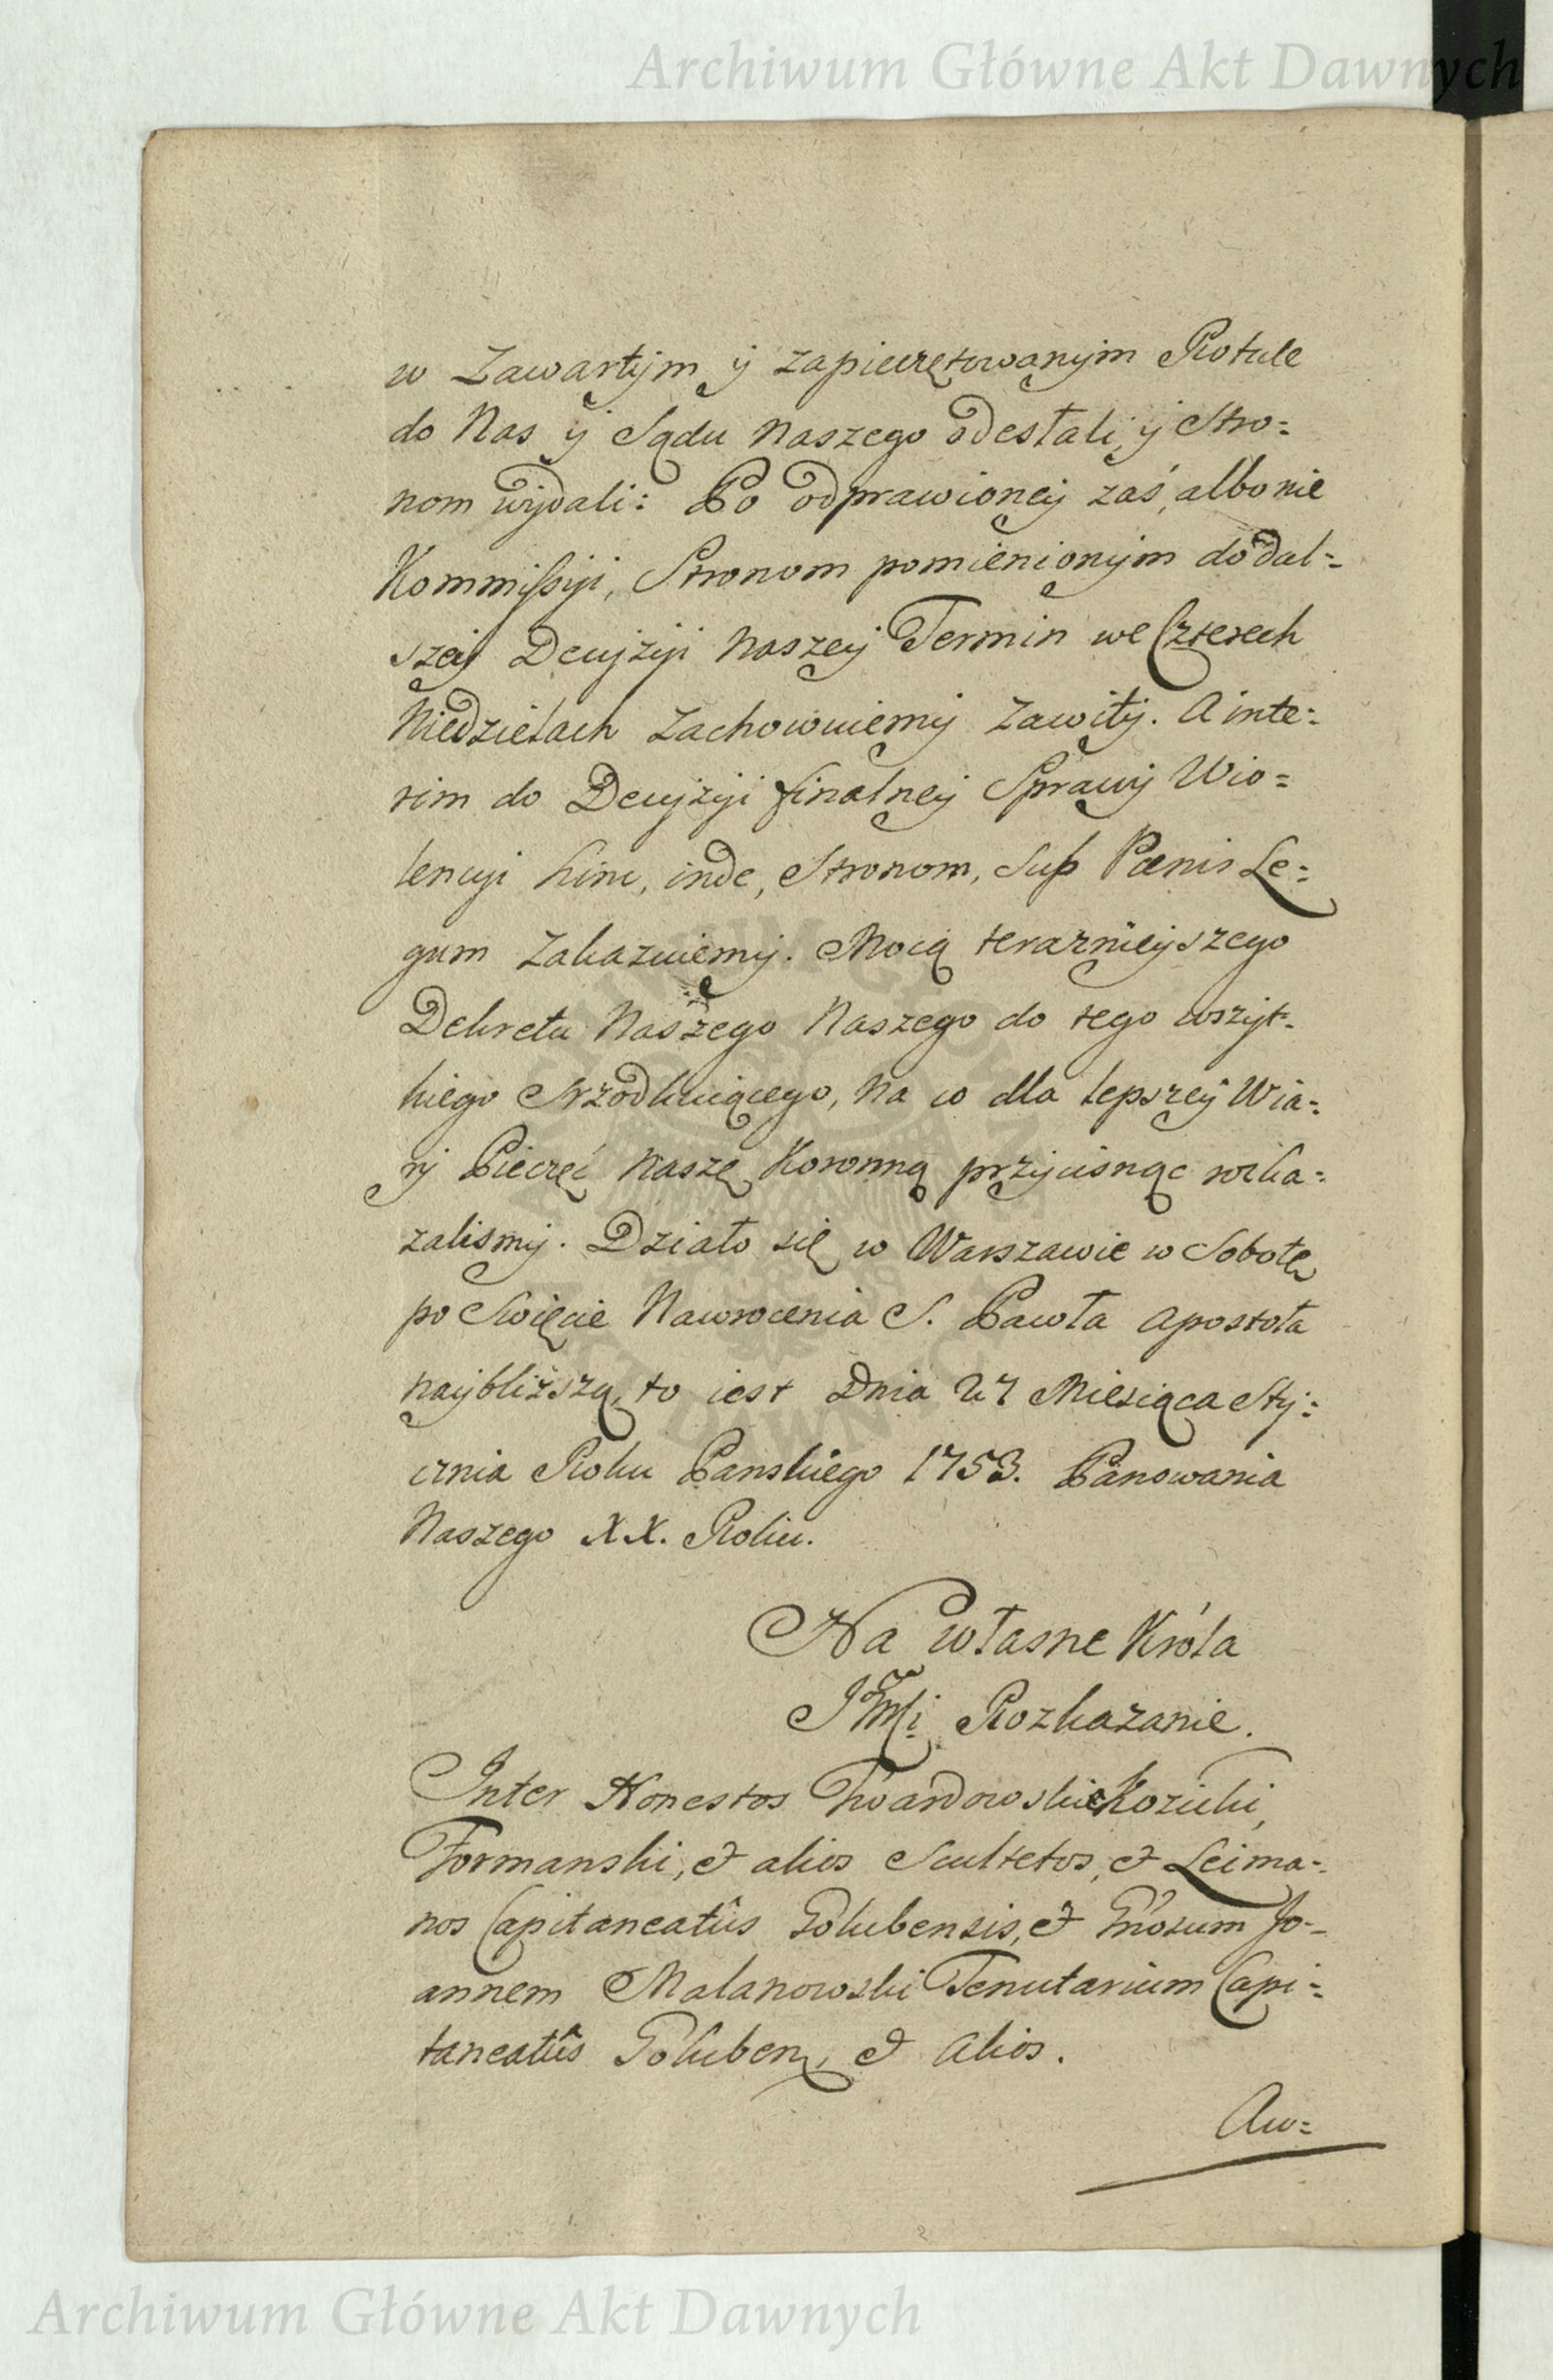 Archiwum Główne Akt Dawnych
w Zawartym y zapieczętowanym Rotule
do Nas y Sądu Naszego odesłali, y Stro=
nom wydali: Po odprawioney zaś, albo nie
Kommissyi, Stronom pomienionym do dal=
szey Decyzyi Naszey Termin we Czterech
Niedzielach zachowuiemy zawity. A inte=
rim do Decyzyi finalney Sprawy Wio=
lencyi hinc, inde, Stronom, sub Pœnis Le=
gum zakazuiemy. Mocą teraznieyszego
Dekretu Naszego Naszego do tego wszyt=
kiego Srzodkuiącego, Na co dla lepszey Wia=
ry Pieczęć Naszę Koronną przycisnąc roska=
zalismy. Działo się w Warszawie w Sobotę
po Swięcie Nawrocenia S. Pawła Apostoła
naybliższą, to iest Dnia 27 Miesiąca Sty=
cznia Roku Panskiego 1753. Panowania
Naszego XX. Roku.
Na własne Króla
JMci Rozkazanie.
Inter Honestos Twardowskie Kozicki,
Formanski, et alios Scultetos, et Leima=
nos Capitaneatûs Golubensis, et Gnosum Jo=
annem Malanowski Tenutarium Capi=
taneatûs Goluben, et Alios.
Au=
Archiwum Główne Akt Dawnych